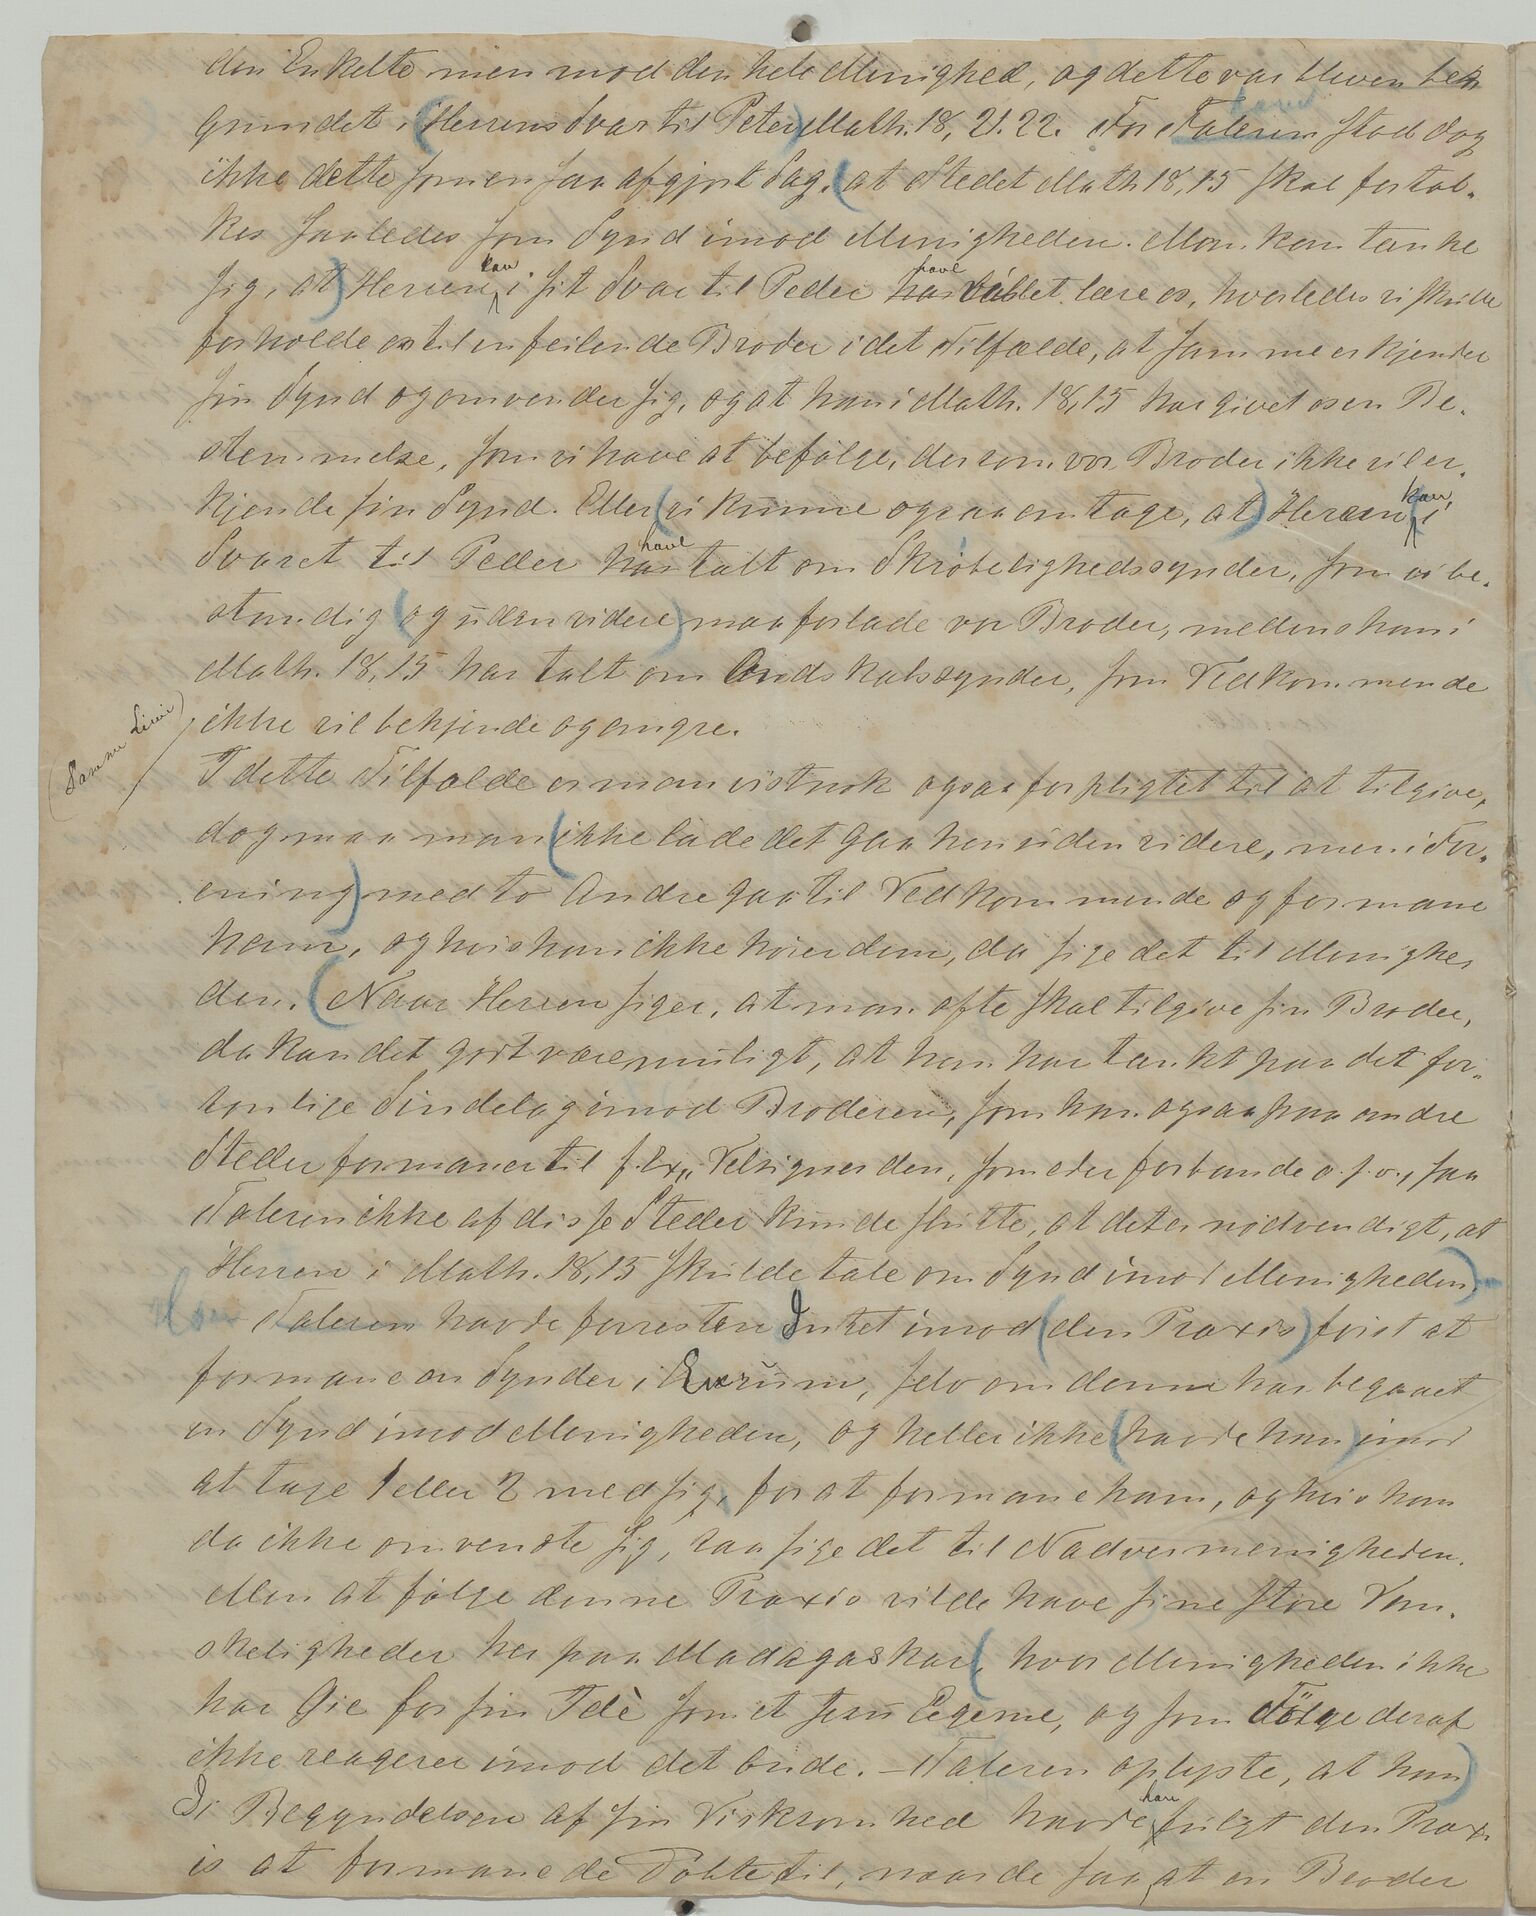 den Enkelte men mod den hele Menighed, og dette var bleven be-
grundet i (Herrens Svar til Peter) Math. 18, 21.22. For Taleren stod dog
ikke dette som en saa afgjort Sag, (at Stedet Math 18,15 skal fortol-
kes saaledes som Synd imod Menigheden. Man kan tænke
sig, at) Herren kan i sit Svar til Peder have villet lære os, hvorledes vi skulle
forholde os til en feilende Broder i det Tilfælde, at samme erkjender
sin Synd og omvender sig, og at han i Math. 18,15 har givet os en Be-
stemmelse, som vi have at befølge, dersom vor Broder ikke vil er-
kjende sin Synd. Eller (vi kunne ogsaa antage, at) Herren kan i
Svaret til Peder have talt om Skrøbelighedssynder, som vi be-
standig (og uden videre) maa forlade vor Broder, medens han i
Math. 18,15 har talt om Ondskabssynder, som Vedkommende
ikke vil bekjende og angre.
(Samme Linie)
I dette Tilfælde er man vistnok ogsaa forpligtet til at tilgive,
dog maa man (ikke lade det gaa hen uden videre, men i For-
ening) med to Andre gaa til Vedkommende og formane
ham, og hvis han ikke hører dem, da sige det til Menighe
den. (Naar Herren siger, at man ofte skal tilgive sin Broder,
da kan det godt være muligt, at han har tænkt paa det for-
sonlige Sindelag imod Broderen, som han ogsaa paa andre
Steder formaner til f.Ex. "Velsigner dem, som eder forbande o.s.v., saa
Taleren ikke af disse Steder kunde slutte, at det er nødvendigt, at
Herren i Math. 18,15 skulde tale om Synd imod Menigheden)
Han Taleren havde forresten Intet imod (den Praxis) først at
formane en Synder i Enrum, selv om denne har begaaet
en Synd imod Menigheden, og heller ikke (havde han) imod
at tage 1 eller 2 med sig, for at formane ham, og hvis han
da ikke omvendte sig, saa sige det til Nadvermenigheden.
Men at følge denne Praxis vilde have sine store Van-
skeligheder her paa Madagaskar, (hvor Menigheden ikke
har Øie for sin Idè som et Jesu Legeme, og som Følge deraf
ikke reagerer imod det onde. – Taleren oplyste, at han)
I Begyndelsen af sin Virksomhed havde han fulgt den Prax
is at formane de Døbte til, naar de saa, at en Broder